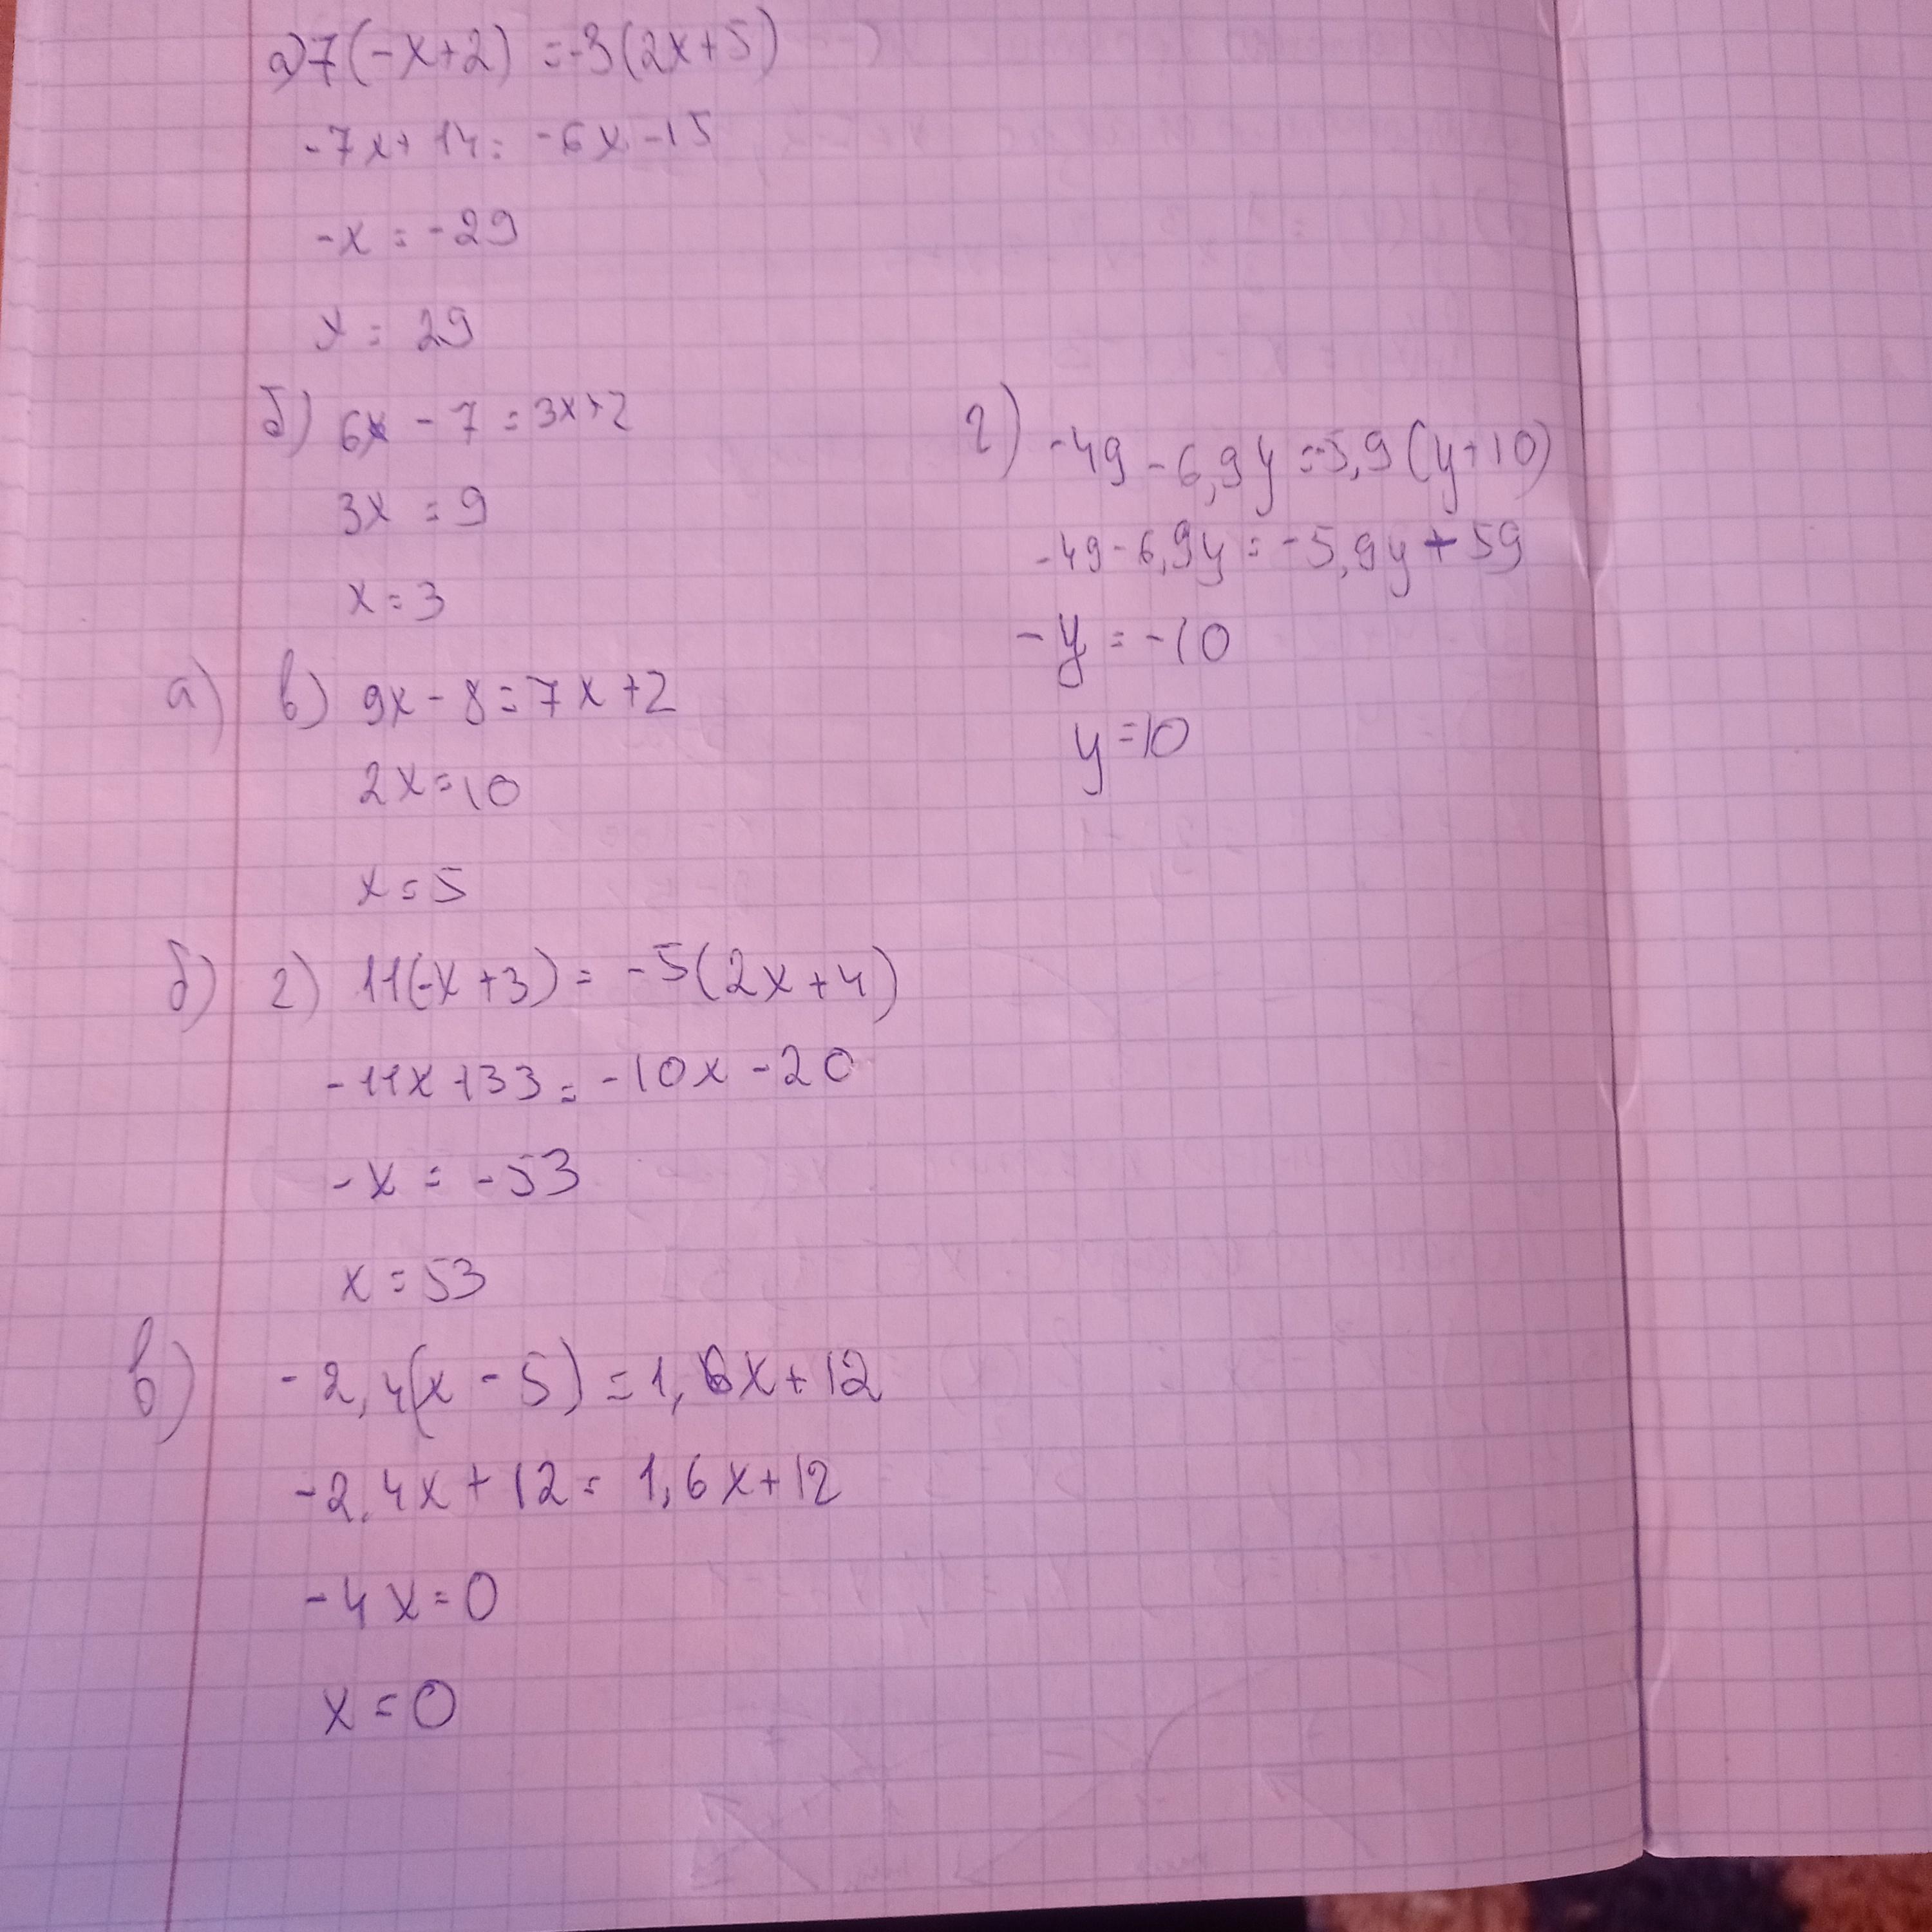 а) 7(-x+2) =-3(2x+5)
-7x+14= -6x-15
-x = -29
x = 29
б) 6x - 7 = 3x+2
3x = 9
x = 3
а) в) 9x - 8 = 7x+2
2x=10
x = 5
б) г) 11(-x+3) = -5(2x+4)
-11x+33 = -10x-20
-x = -53
x = 53
в) -2,4(x-5) = 1,6x+12
-2,4x+12 = 1,6x+12
-4x=0
x = 0
г) -49-6,9y=-5,9(y+10)
-49-6,9y=-5,9y+59
-y = -10
y=10